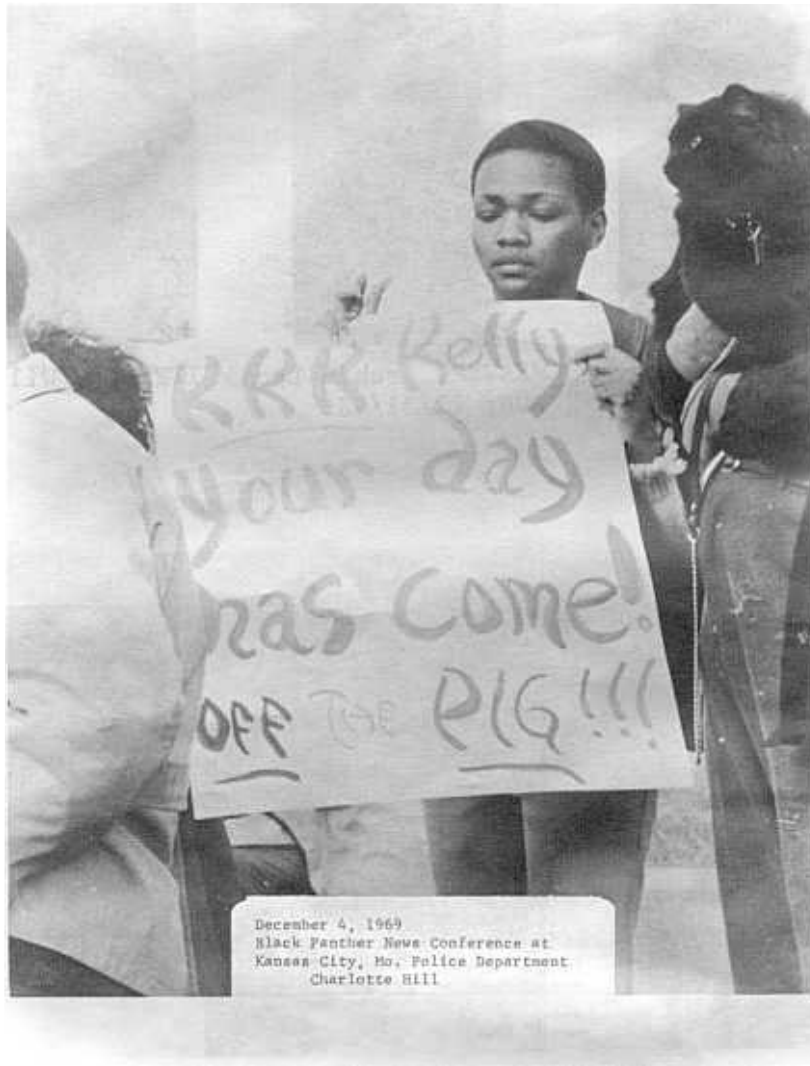 K.K.K. Kelly
your day
has come!
OFF THE PIG!!!
December 4, 1969
Black Panther News Conference at
Kansas City, Mo. Police Department
Charlotte Hill